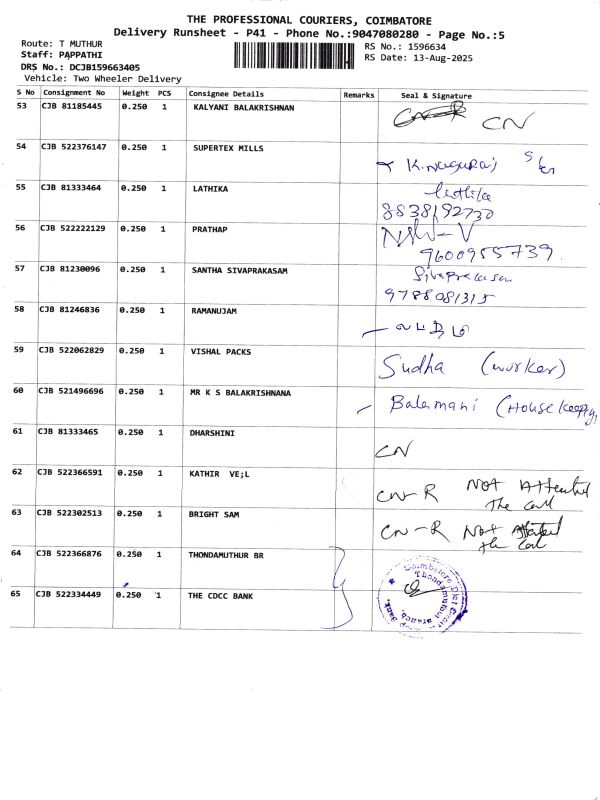 THE PROFESSIONAL COURIERS, COIMBATORE
Delivery Runsheet - P41 - Phone No.:9047080280 - Page No.:5
Route: T MUTHUR RS No.: 1596634
Staff: PAPPATHI RS Date: 13-Aug-2025
DRS No.: DCJB159663405
Vehicle: Two Wheeler Delivery
S No Consignment No Weight PCS Consignee Details Remarks Seal & Signature
53 CJB 81185445 0.250 1 KALYANI BALAKRISHNAN CN
54 CJB 522376147 0.250 1 SUPERTEX MILLS K. Nagaraj
55 CJB 81333464 0.250 1 LATHIKA Lathika
8838192730
56 CJB 522222129 0.250 1 PRATHAP
9600955739
57 CJB 81230096 0.250 1 SANTHA SIVAPRAKASAM Sivaprakasam
9788081315
58 CJB 81246836 0.250 1 RAMANUJAM
59 CJB 522062829 0.250 1 VISHAL PACKS Sudha (worker)
60 CJB 521496696 0.250 1 MR K S BALAKRISHNANA Balamani (House keeping)
61 CJB 81333465 0.250 1 DHARSHINI CN
62 CJB 522366591 0.250 1 KATHIR VE;L CN-R Not Attented
The Call
63 CJB 522302513 0.250 1 BRIGHT SAM CN-R Not
the Call
64 CJB 522366876 0.250 1 THONDAMUTHUR BR
65 CJB 522334449 0.250 1 THE CDCC BANK
Coimbatore Dist
Thondamuthur Branch
Bank